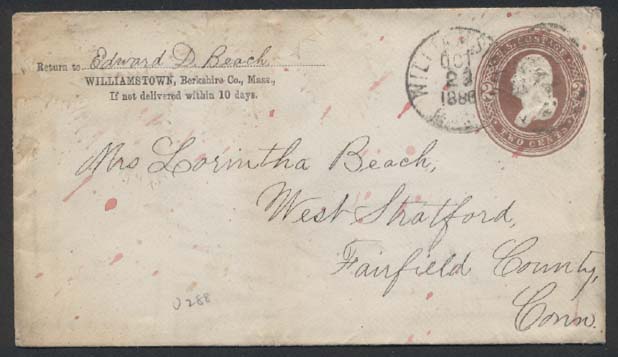 Return to Edward D. Beach
WILLIAMSTOWN, Berkshire Co., Mass.,
If not delivered within 10 days.
OCT
23
1886
U.S. POSTAGE
TWO CENTS
2
Mrs Lorintha Beach,
West Stratford,
Fairfield County,
Conn.
U288